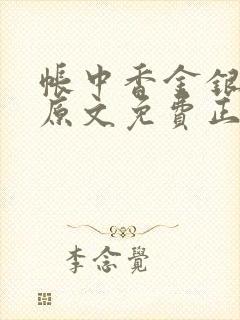 帳中香金銀
原文免費正
李念覺